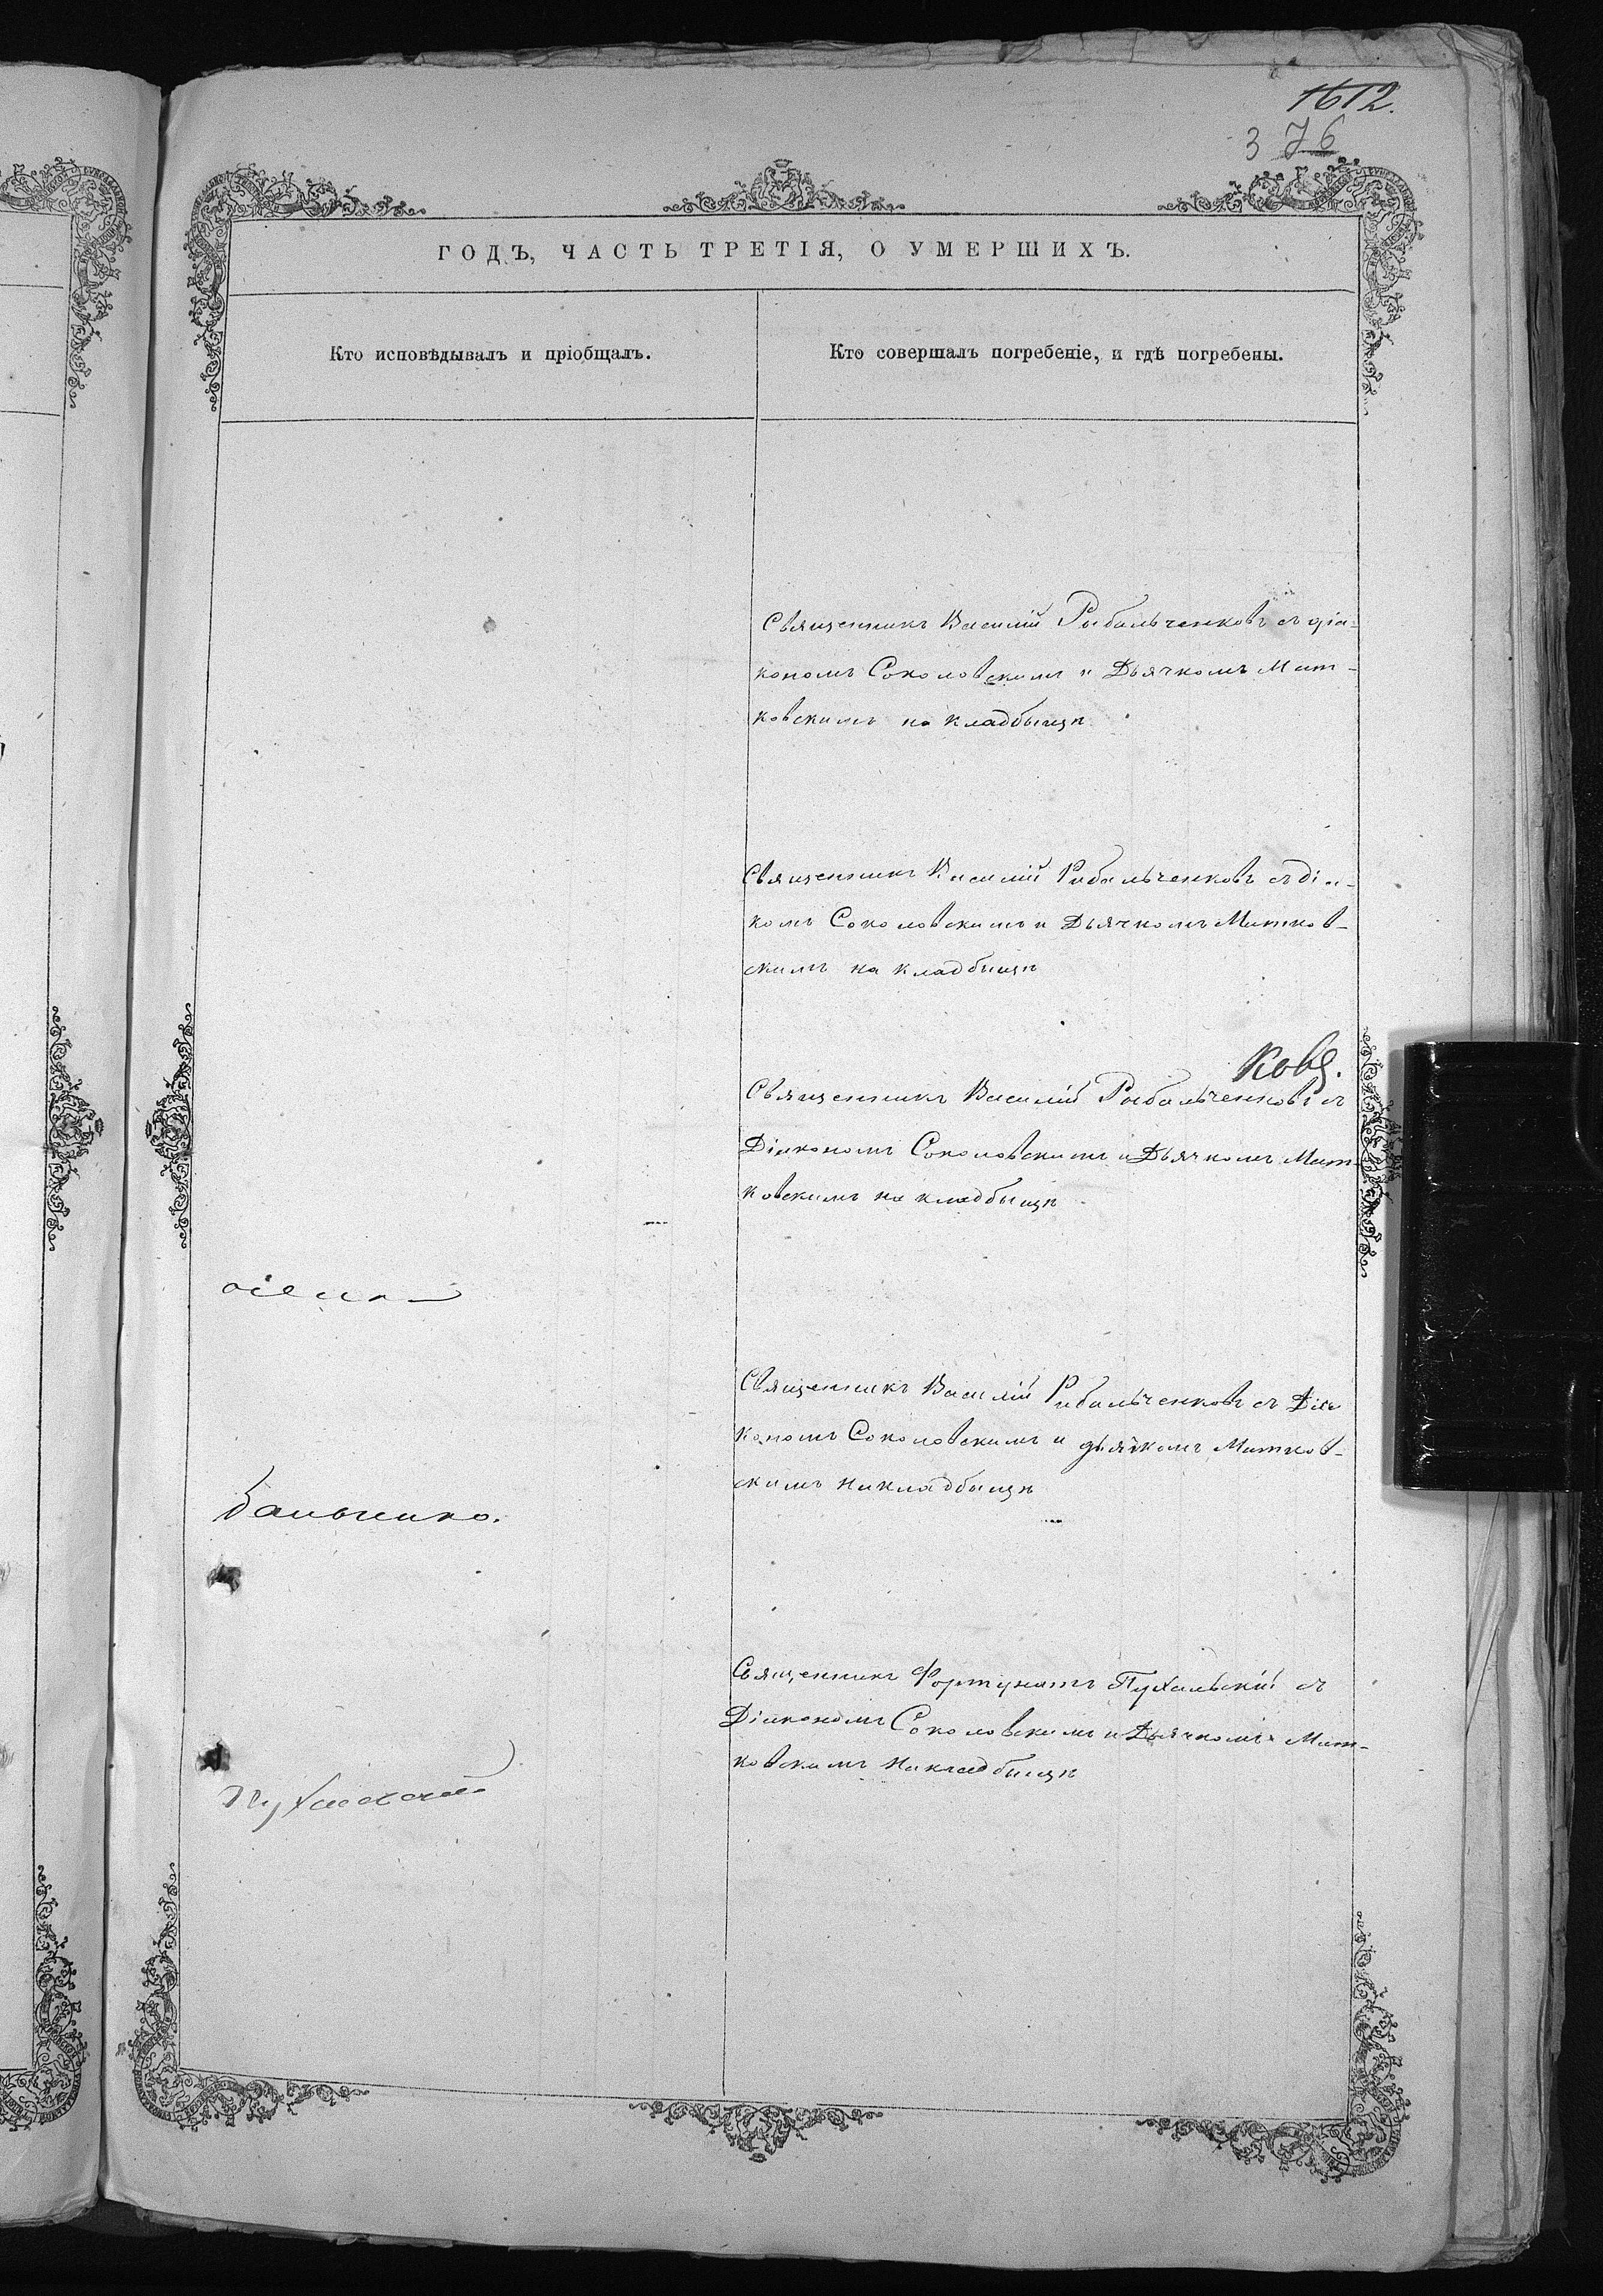 1612.
3 76
ГОДЪ, ЧАСТЬ ТРЕТІЯ, О УМЕРШИХЪ.
Кто исповѣдывалъ и пріобщалъ.
Кто совершалъ погребеніе, и гдѣ погребены.
Священникъ Василій Рыбальченковъ съ діа-
кономъ Соколовскимъ и Дьячкомъ Мит-
ковскимъ на кладбищѣ
Священникъ Василій Рибальченковъ съ діа-
комъ Соколовскимъ и Дьячкомъ Митков-
скимъ на кладбищѣ
Священникъ Василій Рыбальченковъ съ
Діакономъ Соколовскимъ и Дьячкомъ Мит-
ковскимъ на кладбищѣ
Священникъ Василій Рибальченковъ съ Діа
кономъ Соколовскимъ и дьячкомъ Митков-
скимъ на кладбищѣ
бальченко.
Священникъ Фортунатъ Пухальскій съ
Діакономъ Соколовскимъ и Дьячкомъ Мит-
ковскимъ на кладбищѣ
Пухальскій